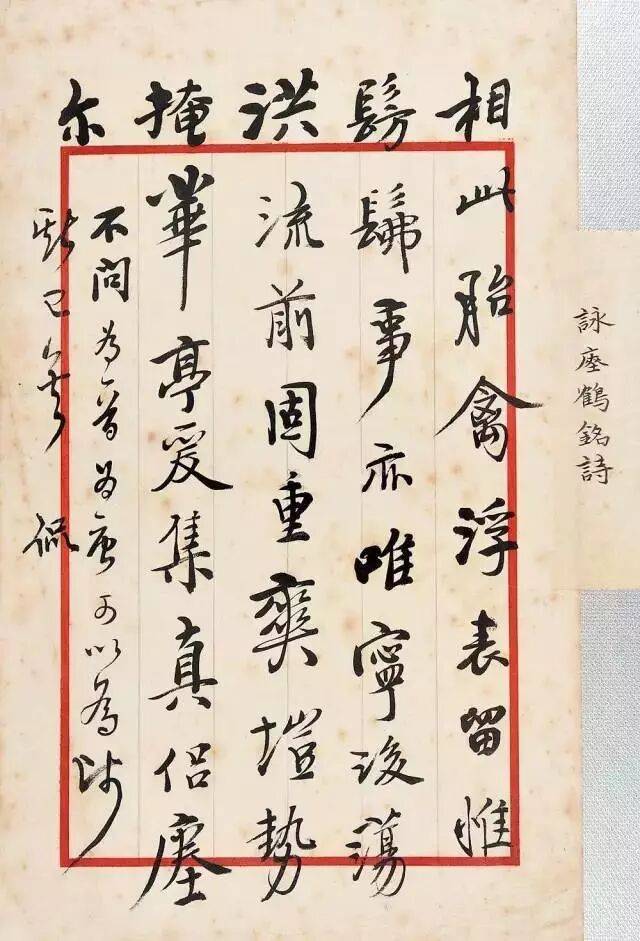 詠瘞鶴銘詩
相此胎禽浮表留惟
髣髴事亦唯寧後蕩
洪流前固重爽塏勢
掩華亭爰集真侶瘞
尔
不問為晉為唐可以為師
斯已矣 侃